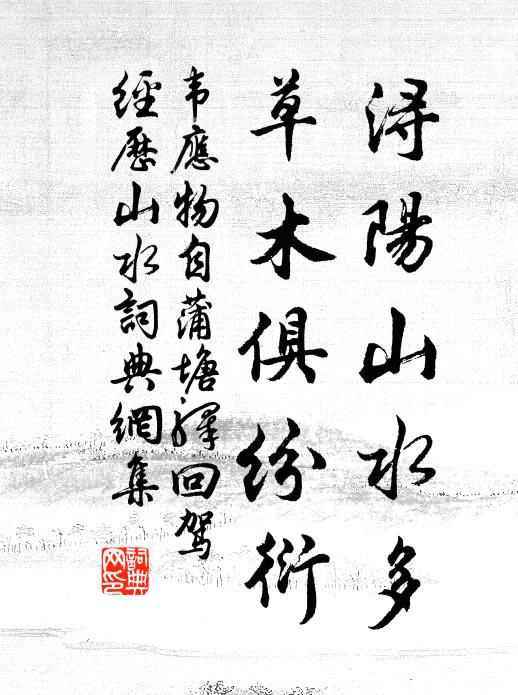 潯陽山水多
草木俱紛衍
韦應物自蒲塘驛回駕
經歷山水詞典網集
詞典网印